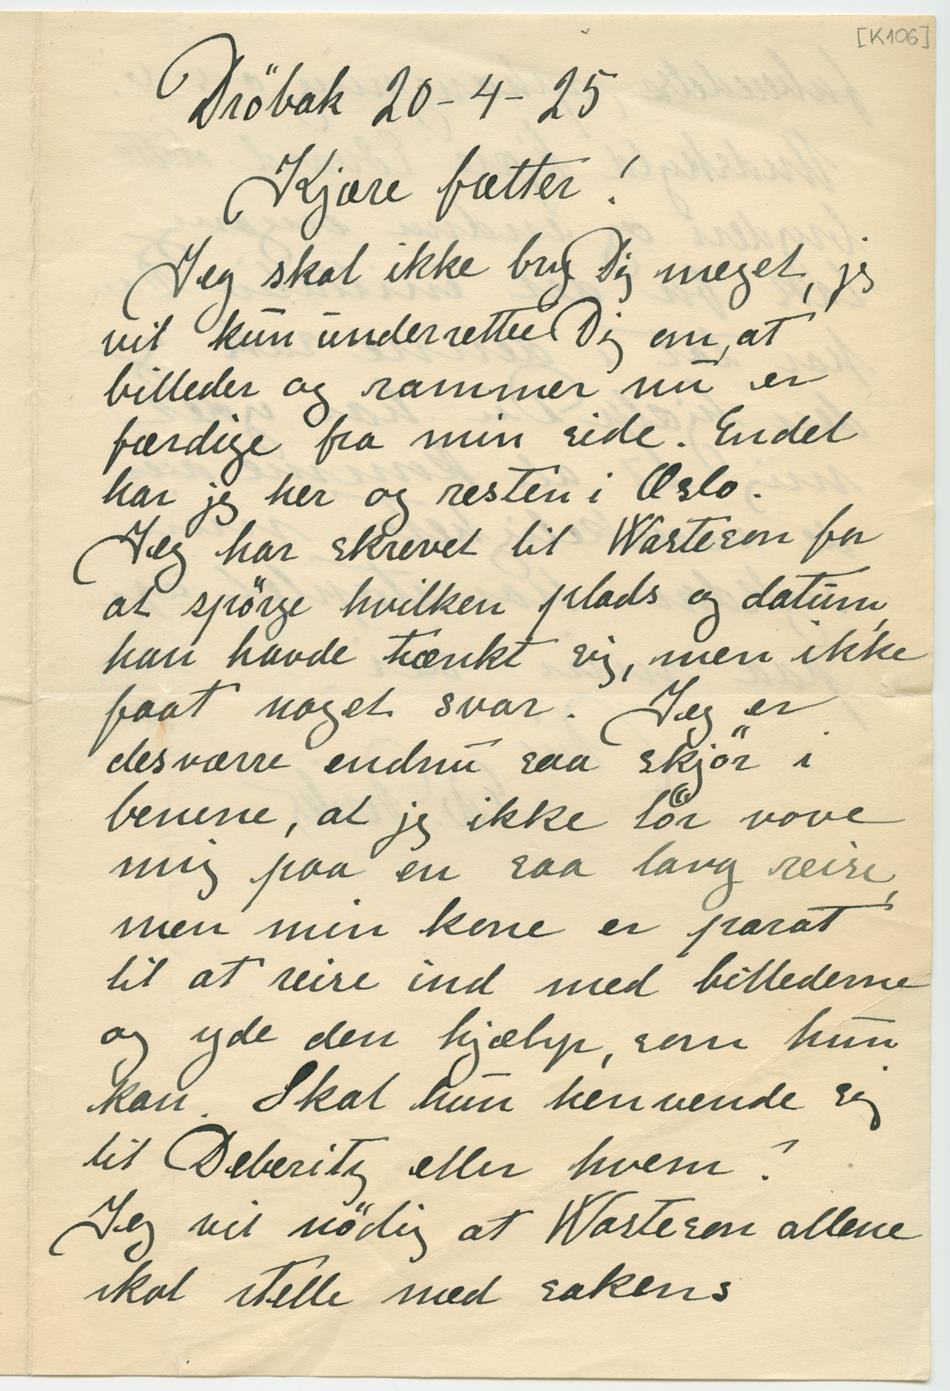 [K106]
Dröbak 20-4-25
Kjære fætter!
Jeg skal ikke bry Dig meget, jeg
vil kun underrette Dig om, at
billeder og rammer nu er
færdige fra min side. Endel
har jeg her og resten i Oslo.
Jeg har skrevet til Wasteson for
at spörge hvilken plads og datum,
han havde tænkt sig, men ikke
faat noget svar. Jeg er
desværre endnu saa skjör i
benene, at jeg ikke tör vove
mig paa en saa lang reise,
men min kone er parat
til at reise ind med billederne
og yde den hjælp, som hun
kan. Skal hun henvende sig
til Deberitz eller hvem?
Jeg vil nödig at Wasteson allene
skal stelle med sakens